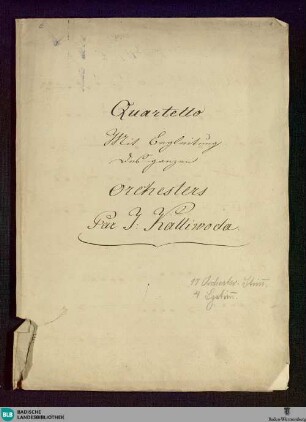 Quartetto
Mit Begleitung
des ganzen
Orchesters
Par J. Kalliwoda
BLB BADISCHE
LANDESBIBLIOTHEK
Baden-Württemberg